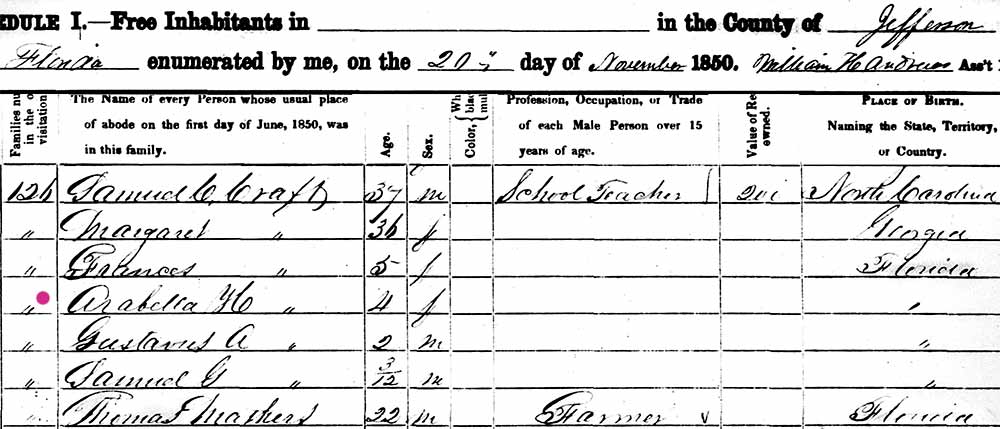 EDULE I.—Free Inhabitants in in the County of Jefferson
Florida enumerated by me, on the 20th day of November 1850. William H Andrews Ass't
Families nu in the o visitation
The Name of every Person whose usual place of abode on the first day of June, 1850, was in this family.
Age.
Sex.
Color, { Wh blac mul
Profession, Occupation, or Trade of each Male Person over 15 years of age.
Value of Re owned.
PLACE OF BIRTH. Naming the State, Territory, or Country.
126 Samuel C. Craft 37 m School Teacher North Carolina
" Margaret " 36 f Georgia
" Frances " 5 f Florida
" Arabella H " 4 f "
" Gustavus A " 2 m "
" Samuel G " 3/12 m "
" Thomas 22 m Farmer Florida